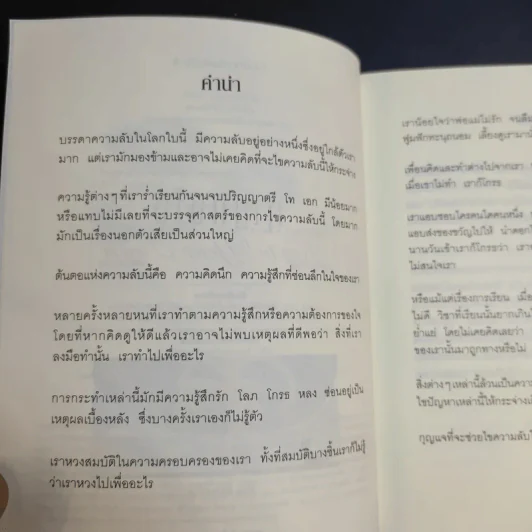 คำนำ
บรรดาความลับในโลกใบนี้ มีความลับอยู่อย่างหนึ่งซึ่งอยู่ใกล้ตัวเรา
มาก แต่เรามักมองข้ามและอาจไม่เคยคิดที่จะไขความลับนี้ให้กระจ่าง
ความรู้ต่างๆที่เราร่ำเรียนกันจนจบปริญญาตรี โท เอก มีน้อยมาก
หรือแทบไม่มีเลยที่จะบรรจุศาสตร์ของการไขความลับนี้ โดยมาก
มักเป็นเรื่องนอกตัวเสียเป็นส่วนใหญ่
ต้นตอแห่งความลับนี้คือ ความคิดนึก ความรู้สึกที่ซ่อนลึกในใจของเรา
หลายครั้งหลายหนที่เราทำตามความรู้สึกหรือความต้องการของใจ
โดยที่หากคิดดูให้ดีแล้วเราอาจไม่พบเหตุผลที่ดีพอว่า สิ่งที่เรา
ลงมือทำนั้น เราทำไปเพื่ออะไร
การกระทำเหล่านี้มักมีความรู้สึกรัก โลภ โกรธ หลง ซ่อนอยู่เป็น
เหตุผลเบื้องหลัง ซึ่งบางครั้งเราเองก็ไม่รู้ตัว
เราหวงสมบัติในความครอบครองของเรา ทั้งที่สมบัติบางชิ้นเราก็ไม่รู้
ว่าเราหวงไปเพื่ออะไร
เราน้อยใจว่าพ่อแม่ไม่รัก
ฟูมฟักทะนุถนอม เลี้ยงดูเรามา
เพื่อนคิดและทำต่างไปจากเรา
เมื่อเขาไม่ทำ เราก็โกรธ
เราแอบชอบใครคนใดคนหนึ่ง
แอบส่งของขวัญไปให้
นานวันเข้าเราก็โกรธว่า
ไม่สนใจเรา
หรือแม้แต่เรื่องการเรียน
ไม่ดี วิชาที่เรียนนั้นยากเกิน
ย่ำแย่ โดยไม่เคยคิดเลยว่า
ของเรานั้นมาถูกทางหรือไม่
สิ่งต่างๆเหล่านี้ล้วนเป็นความ
ไขปัญหาเหล่านี้ให้กระจ่าง
กุญแจที่จะช่วยไขความลับ